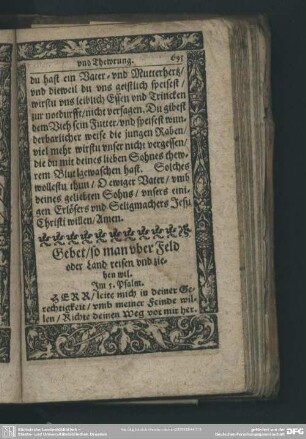 vnd Thewrung. 695
du hast ein Vater- vnd Mutterhertz/
vnd dieweil du vns geistlich speisest/
wirstu vns leiblich Essen vnd Trincken
zur notdurfft/ nicht versagen. Du gibest
dem Vieh sein Futter/ vnd speisest wun-
derbarlicher weise die jungen Raben/
viel mehr wirstu vnser nicht vergessen/
die du mit deines lieben Sohnes thew-
rem Blut gewaschen hast. Solches
wollestu thun/ O ewiger Vater/ vmb
deines geliebten Sohns/ vnsers eini-
gen Erlösers vnd Seligmachers Jesu
Christi willen/ Amen.
Gebet/ so man vber Feld
oder Land reisen vnd zie-
hen wil.
Im 5. Psalm.
HERR/ leite mich in deiner Ge-
rechtigkeit/ vmb meiner Feinde wil-
len/ Richte deinen Weg vor mir her.